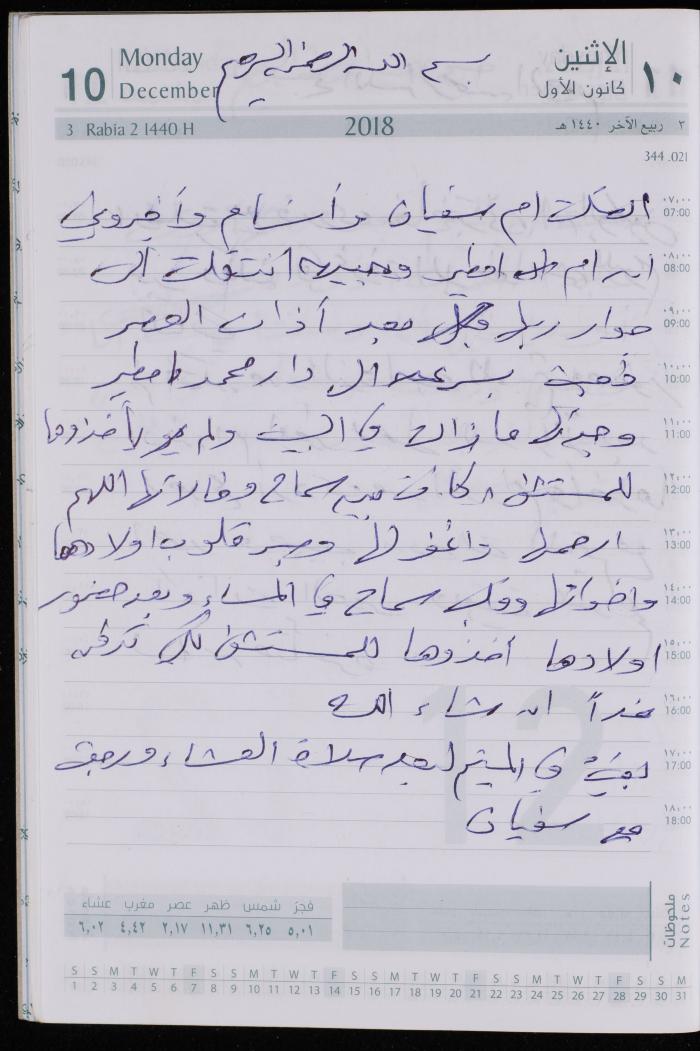 Monday
بسم الله الرحمن الرحيم
الإثنين
10
December
كانون الأول
١٠
3 Rabia 2 1440 H
2018
٢ ربيع الآخر ١٤٤٠ هـ
344 .021
٠٧,٠٠
07:00
اتصلت ام سفيان وأنسام وأخبروني
٠٨,٠٠
08:00
ان ام امطير وحبيبه انتقلت الى
٠٩,٠٠
09:00
جوار ربها بعد أذان العصر
١٠,٠٠
10:00
ذهبت بسرعه الى دار محمد امطير
١١,٠٠
11:00
وجدتها مازالت في البيت ولم يأخذوها
١٢,٠٠
12:00
للمستشفى كانت سماح وخالاتها اللهم
١٣,٠٠
13:00
ارحمها واغفر لها وصبر قلوب اولادها
١٤,٠٠
14:00
واخواتها سماح في المساء وبعد حضور
١٥,٠٠
15:00
اولادها أخذوها للمستشفى لكي تدفن
١٦,٠٠
16:00
غداً ان شاء الله
١٧,٠٠
17:00
بقيت في الميتم لبعد صلاة العشاء ورجعت
١٨,٠٠
18:00
مع سفيان
12
فجر شمس ظهر عصر مغرب عشاء
٥,٠١ ٦,٢٥ ١١,٣١ ٢,١٧ ٤,٤٢ ٦,٠٢
ملحوظات
Notes
S S M T W T F S S M T W T F S S M T W T F S S M T W T F S S M
1 2 3 4 5 6 7 8 9 10 11 12 13 14 15 16 17 18 19 20 21 22 23 24 25 26 27 28 29 30 31